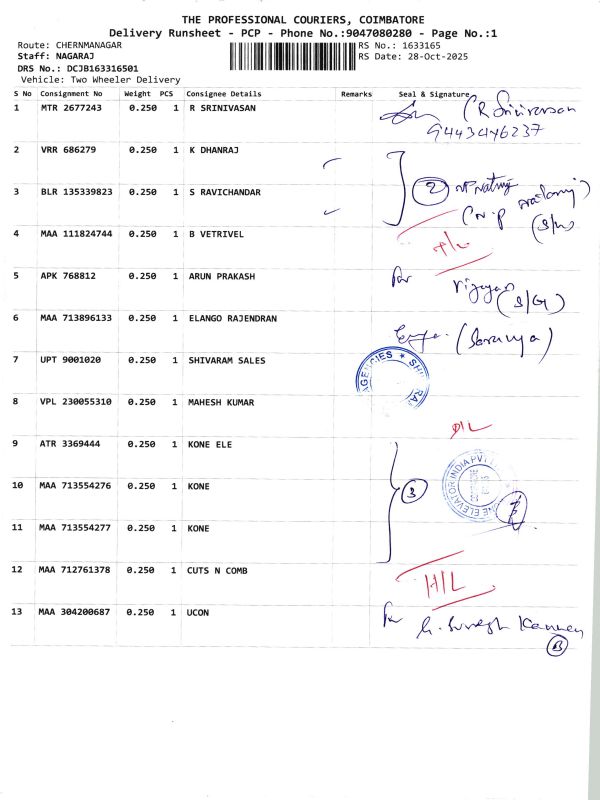 THE PROFESSIONAL COURIERS, COIMBATORE
Delivery Runsheet - PCP - Phone No.:9047080280 - Page No.:1
Route: CHERNMANAGAR
Staff: NAGARAJ
DRS No.: DCJB163316501
Vehicle: Two Wheeler Delivery
RS No.: 1633165
RS Date: 28-Oct-2025
S No Consignment No Weight PCS Consignee Details Remarks Seal & Signature
1 MTR 2677243 0.250 1 R SRINIVASAN (R Srinivasan
9443446237
2 VRR 686279 0.250 1 K DHANRAJ
3 BLR 135339823 0.250 1 S RAVICHANDAR 2
4 MAA 111824744 0.250 1 B VETRIVEL
5 APK 768812 0.250 1 ARUN PRAKASH for Vijayan (S/G)
6 MAA 713896133 0.250 1 ELANGO RAJENDRAN (Saranya)
7 UPT 9001020 0.250 1 SHIVARAM SALES AGENCIES ★
8 VPL 230055310 0.250 1 MAHESH KUMAR D/L
9 ATR 3369444 0.250 1 KONE ELE
10 MAA 713554276 0.250 1 KONE 3 ELEVATOR INDIA PVT
11 MAA 713554277 0.250 1 KONE
12 MAA 712761378 0.250 1 CUTS N COMB H/L
13 MAA 304200687 0.250 1 UCON for G. Suresh Kannan
B